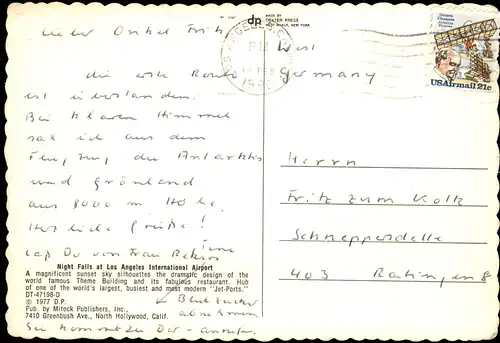 Lieber Onkel Fritz,
die erste Route
ist überstanden.
Bei klarem Himmel
sah ich aus dem
Flugzeug die Antarktis
und Grönland
aus 9000 m Höhe.
Herzliche Grüße!
Laß Du von Frau
Blutzucker
abnehmen
Sie kommt zu Dir - anrufen.
dp
MADE BY
DEXTER PRESS
WEST NYACK, NEW YORK
LOS ANGELES, CA
PM
West
Germany
USAirmail 21c
Herrn
Fritz zum Kolk
Schnepperdelle
403 Ratingen 8
Night Falls at Los Angeles International Airport
A magnificent sunset sky silhouettes the dramatic design of the
world famous Theme Building and its fabulous restaurant. Hub
of one of the world's largest, busiest and most modern "Jet-Ports."
DT-47198-D
© 1977 D.P.
Pub. by Mitock Publishers, Inc.,
7410 Greenbush Ave., North Hollywood, Calif.